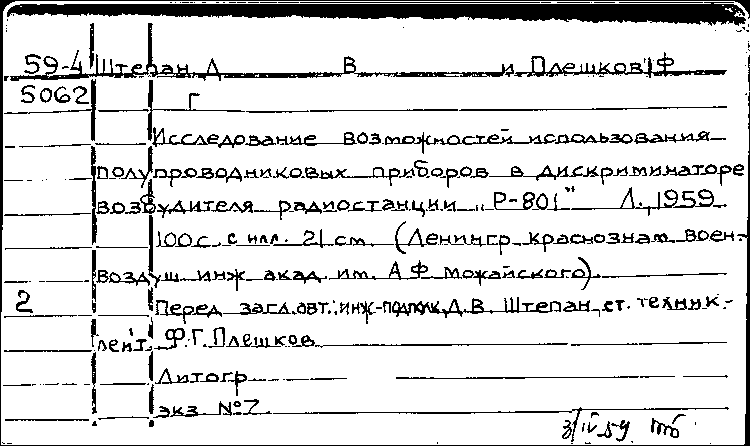 59-4 Штепан Д В и Плешков Ф
5062 Г
Исследование возможностей использования
полупроводниковых приборов в дискриминаторе
возбудителя радиостанции „Р-801" Л., 1959.
100 с. с илл. 21 см. (Ленингр краснознам воен-
воздуш инж акад им. А Ф Можайского)
2 Перед загл. авт.: инж-подполк. Д. В. Штепан, ст. техник-
лейт. Ф. Г. Плешков
Литогр
экз. №7.
3/IV 59